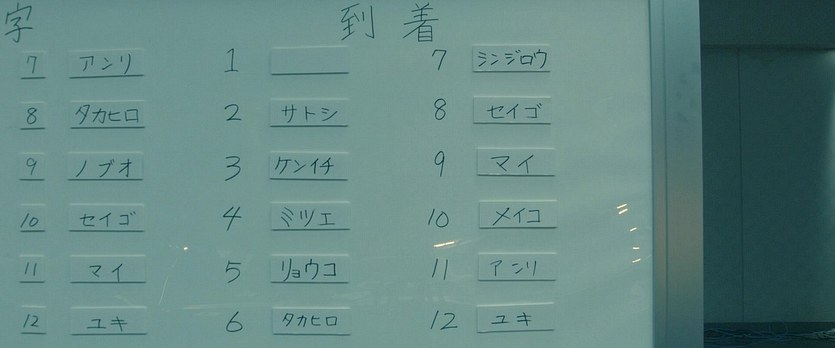 字 到着
7 アンリ 1 7 シンジロウ
8 タカヒロ 2 サトシ 8 セイゴ
9 ノブオ 3 ケンイチ 9 マイ
10 セイゴ 4 ミツエ 10 メイコ
11 マイ 5 リョウコ 11 アンリ
12 ユキ 6 タカヒロ 12 ユキ